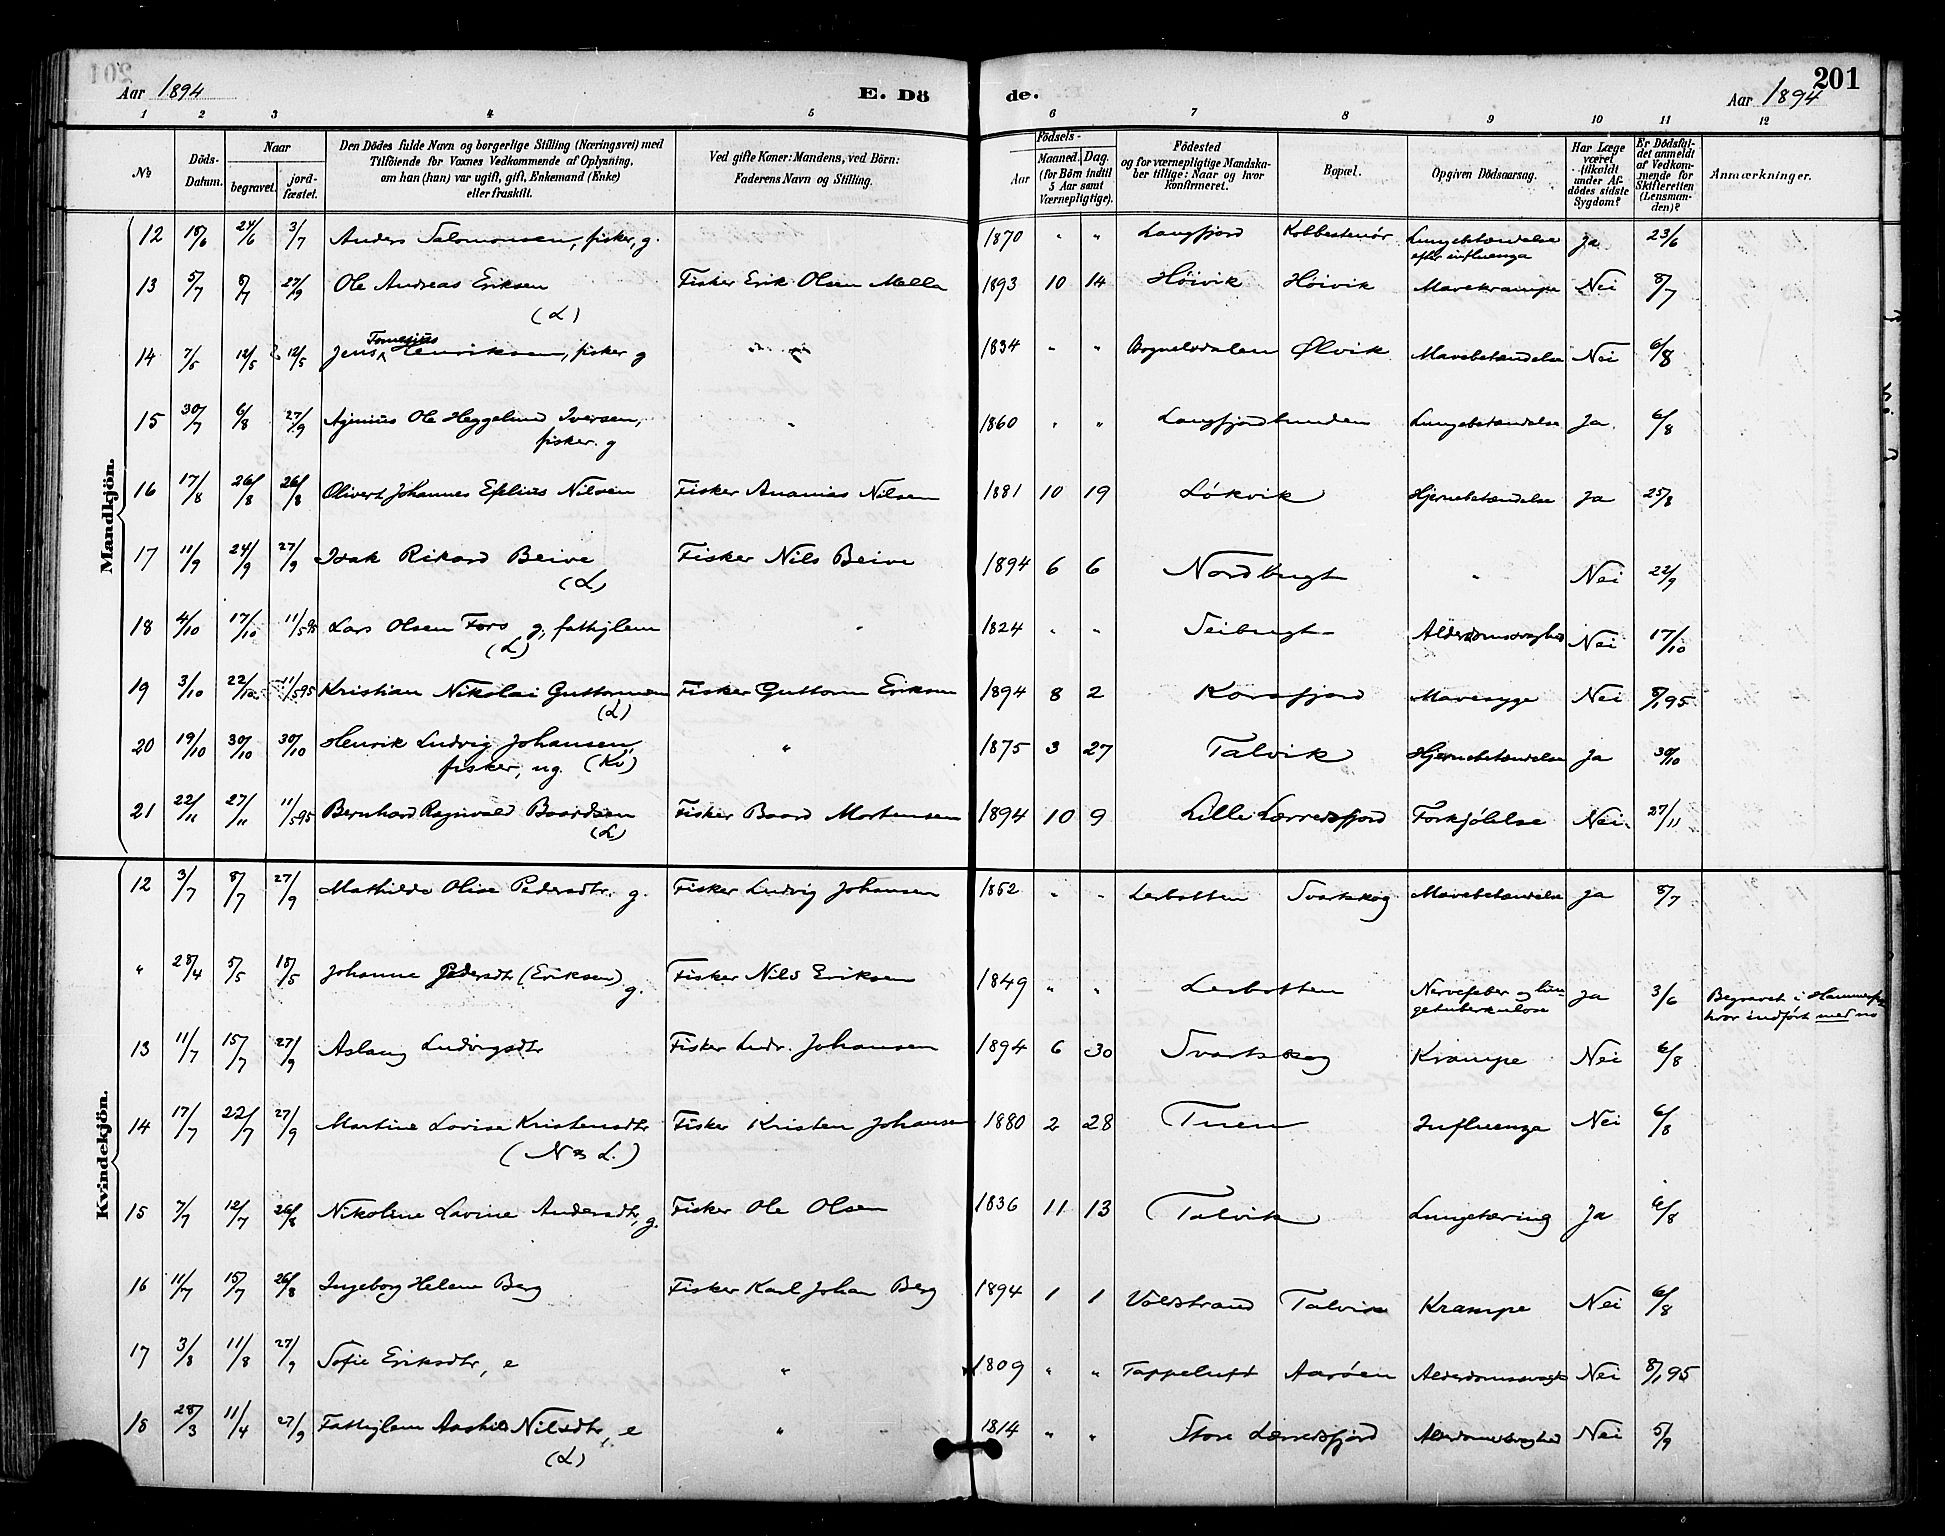 201
Aar 1894 E. Dö de. Aar 1894
1 2 3 4 5 6 7 8 9 10 11 12
No
Döds-Datum.
Naar
begravet.
jord-fæstet.
Den Dödes fulde Navn og borgerlige Stilling (Næringsvei) med
Tilföiende for Voxnes Vedkommende af Oplysning,
om han (hun) var ugift, gift, Enkemand (Enke)
eller fraskilt.
Ved gifte Koner: Mandens, ved Börn:
Faderens Navn og Stilling.
Födsels-
Aar
Maaned. Dag.
(for Börn indtil
5 Aar samt
Værnepligtige).
Födested
og for værnepligtige Mandska-
ber tillige: Naar og hvor
konfirmeret.
Bopæl.
Opgiven Dödsaarsag.
Har Læge
været
tilkaldt
under Af-
dödes sidste
Sygdom?
Er Dödsfal-
det anmeldt
af Vedkom-
mende for
Skifteretten
(Lensman-
den)?
Anmærkninger.
Mandkjön.
12 18/6 24/6 3/7 Anders Salomonsen, fisker, g. 1870 " " Langfjord Kobbestenør Lungebetændelse Ja 23/6
efter influenza
13 5/7 8/7 27/9 Ole Andreas Eriksen Fisker Erik Olsen Mella 1893 10 14 Höivik Höivik Mavekrampe Nei 8/7
(L)
Tomesius
14 7/5 12/5 12/5 Jens Henriksen, fisker g " 1834 " " Bognelvdalen Ølvik Mavebetændelse Nei 6/8
15 30/7 6/8 27/9 Aginius Ole Heggelund Iversen, " 1860 " " Langfjordbunden Lungebetændelse Ja. 6/8
fisker. g
16 17/8 26/8 26/8 Olivert Johannes Efelius Nilsen Fisker Ananias Nilsen 1881 10 19 Lökvik Hjernebetændelse Ja 25/8
17 11/9 24/9 27/9 Isak Rikard Beive Fisker Nils Beive 1894 6 6 Nordbugt " Nei 22/9
(L)
18 4/10 17/10 11/5 95 Lars Olsen Fors g, fattiglem " 1824 " " Seibugt Alderdomssvaghed Nei 17/10
(L)
19 3/10 22/10 11/5 95 Kristian Nikolai Guttormsen Fisker Guttorm Eriksen 1894 8 2 Korsfjord Mavesyge Nei 8/1 95
(L)
20 19/10 30/10 30/10 Henrik Ludvig Johansen, " 1875 3 27 Talvik Hjernebetændelse Ja 30/10
fisker, ug. (Kv)
21 22/11 27/11 11/5 95 Bernhard Ragnvald Baardsen Fisker Baard Mortensen 1894 10 9 Lille Lærredsfjord Forkjölelse Nei 27/11
(L)
Kvindekjön.
12 3/7 8/7 27/9 Mathilde Olise Pedersdtr. g. Fisker Ludvig Johansen 1852 " " Lerbotten Svartskog Mavebetændelse Ja 8/7
" 28/4 5/5 18/5 Johanne Pedersdtr (Eriksen) g. Fisker Nils Eriksen 1849 " " Lerbotten Nervefeber og lun- Ja 3/6 Begravet i Hammerfest
getuberkulose hvor indført med no
13 11/7 15/7 27/9 Aslaug Ludvigsdtr Fisker Ludv. Johansen 1894 6 30 Svartskog Krampe Nei 6/8
14 17/7 22/7 27/9 Martine Lovise Kristensdtr Fisker Kristen Johansen 1880 2 28 Tuen Influenza Nei 6/8
(N & L.)
15 7/7 12/7 26/8 Nikoline Lavine Andersdtr, g. Fisker Ole Olsen 1836 11 13 Talvik Lungetæring Ja 6/8
16 11/7 15/7 26/8 Ingeborg Helene Berg Fisker Karl Johan Berg 1894 1 1 Voldstrand Talvik Krampe Nei 6/8
17 3/8 11/8 27/9 Sofie Eriksdtr, e " 1809 " " Tappeluft Aaröen Alderdomssvagh Nei 8/1 95
18 28/3 11/4 27/9 Fattiglem Nilsdtr, e " 1814 " " Store Lærredsfjord Alderdomssvaghed Nei 5/9
(L)